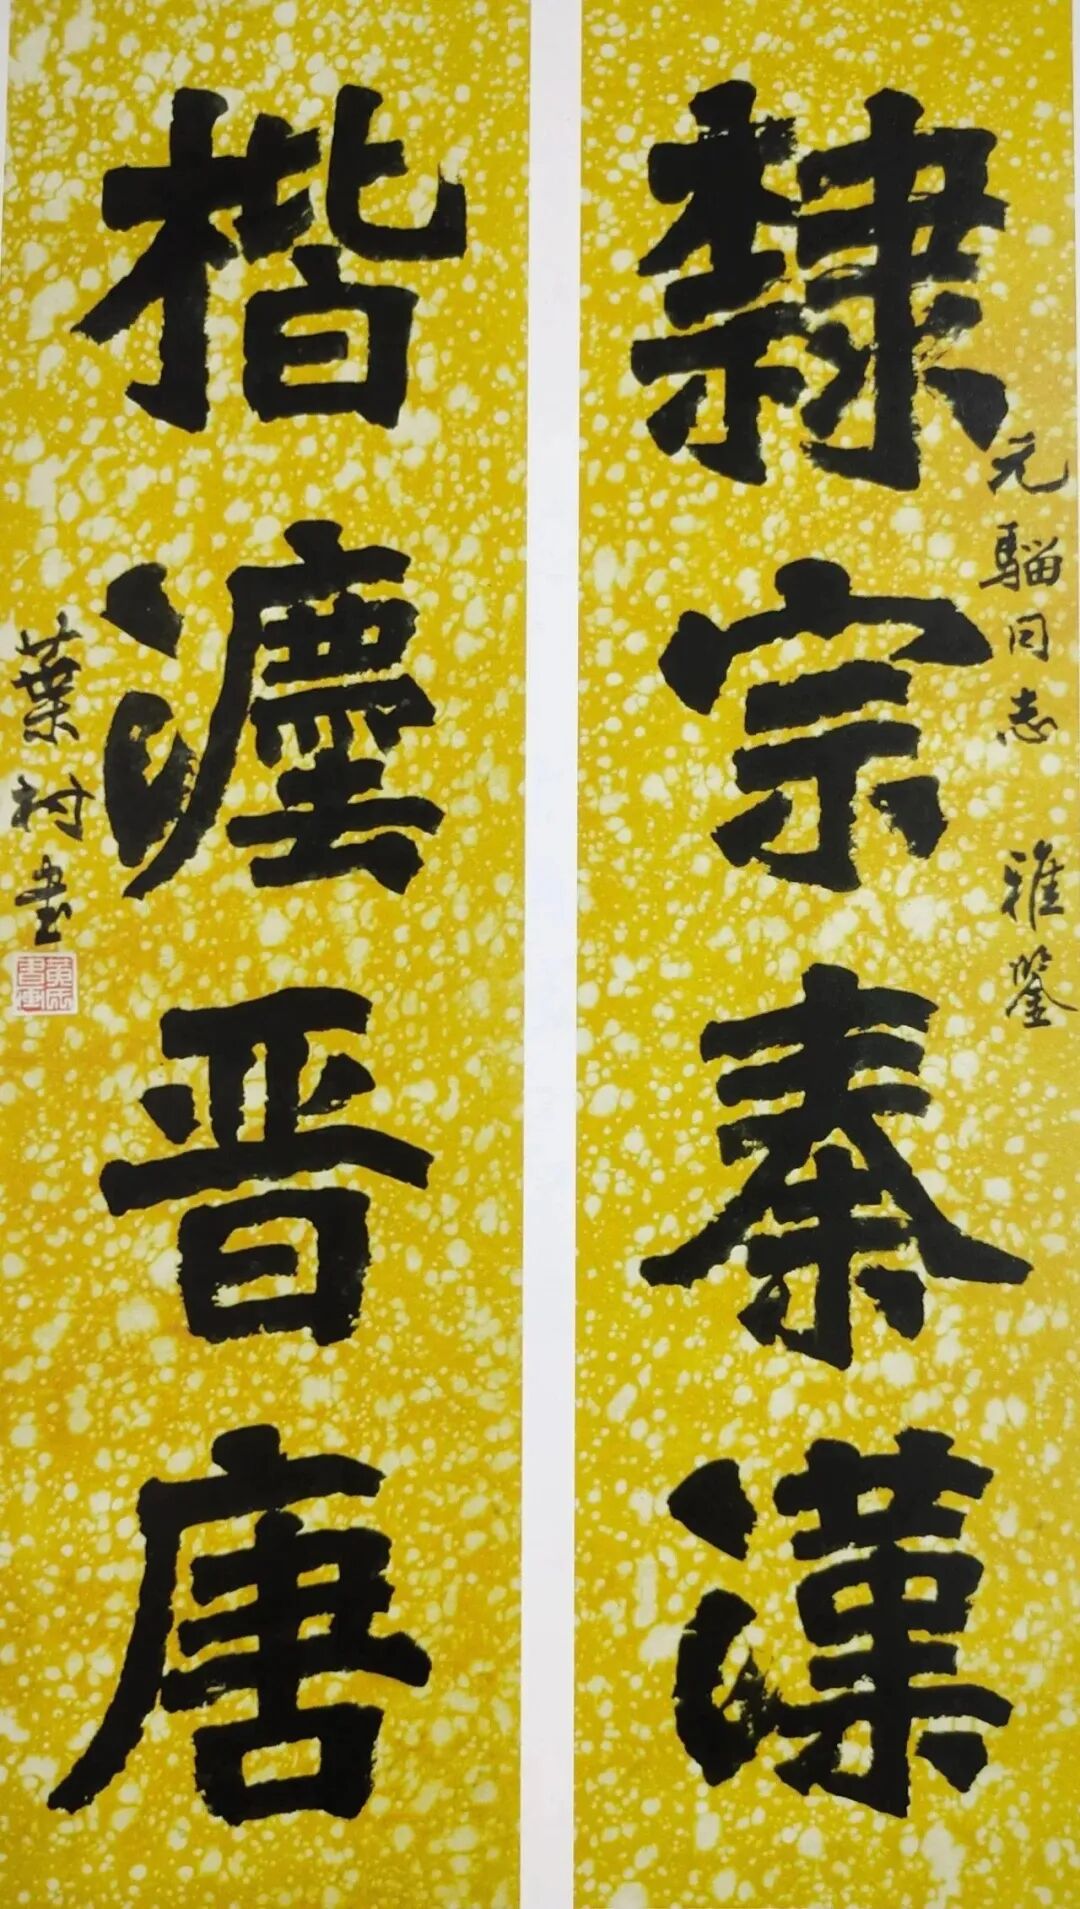 元騮同志 雅鑒
隸宗秦漢
楷灋晋唐
葉村書